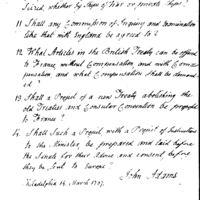 Seized, whether by Ships of War or private Ships?
11. Shall any Commission of Inquiry and Examination
like that with England be agreed to?
12. What Articles in the British Treaty can be offered
to France without Compensation, and with Compen-
sation, and what Compensation shall be demand-
ed?
13. Shall a Project of a new Treaty abolishing the
old Treaties and Consular Convention be proposed
to France?
14. Shall Such a Project with a Project of Instructions
to the Minister, be prepared and laid before
the Senate for their Advice and consent, before
they be Sent to Europe?
John Adams
Philadelphia 14. March 1797.